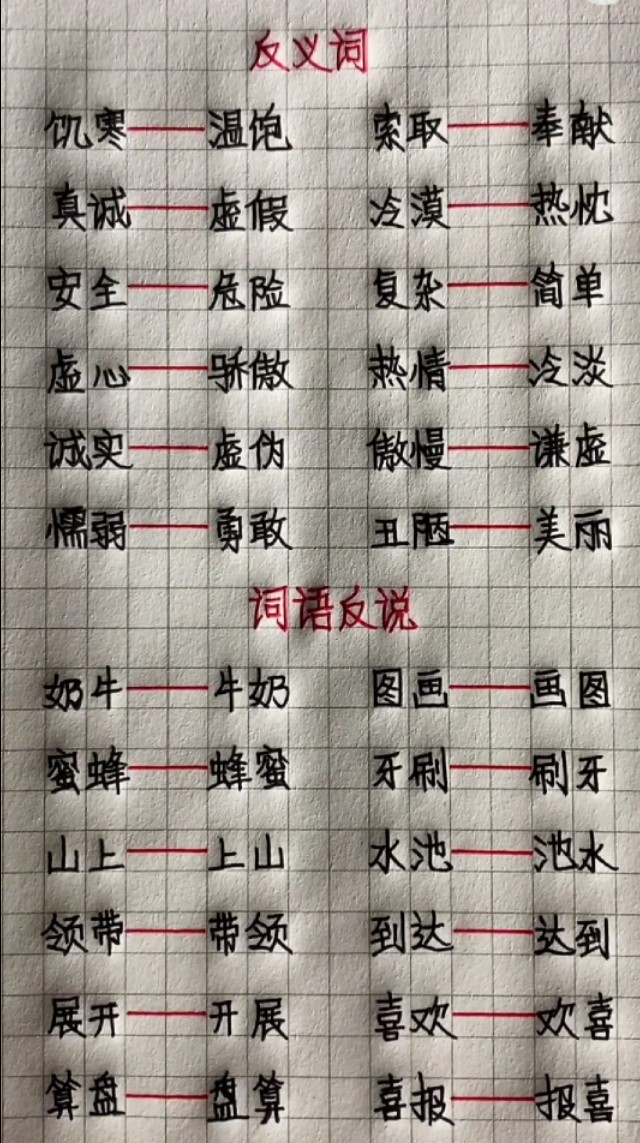 反义词
饥寒——温饱 索取——奉献
真诚——虚假 冷漠——热忱
安全——危险 复杂——简单
虚心——骄傲 热情——冷淡
诚实——虚伪 傲慢——谦虚
懦弱——勇敢 丑陋——美丽
词语反说
奶牛——牛奶 图画——画图
蜜蜂——蜂蜜 牙刷——刷牙
山上——上山 水池——池水
领带——带领 到达——达到
展开——开展 喜欢——欢喜
算盘——盘算 喜报——报喜